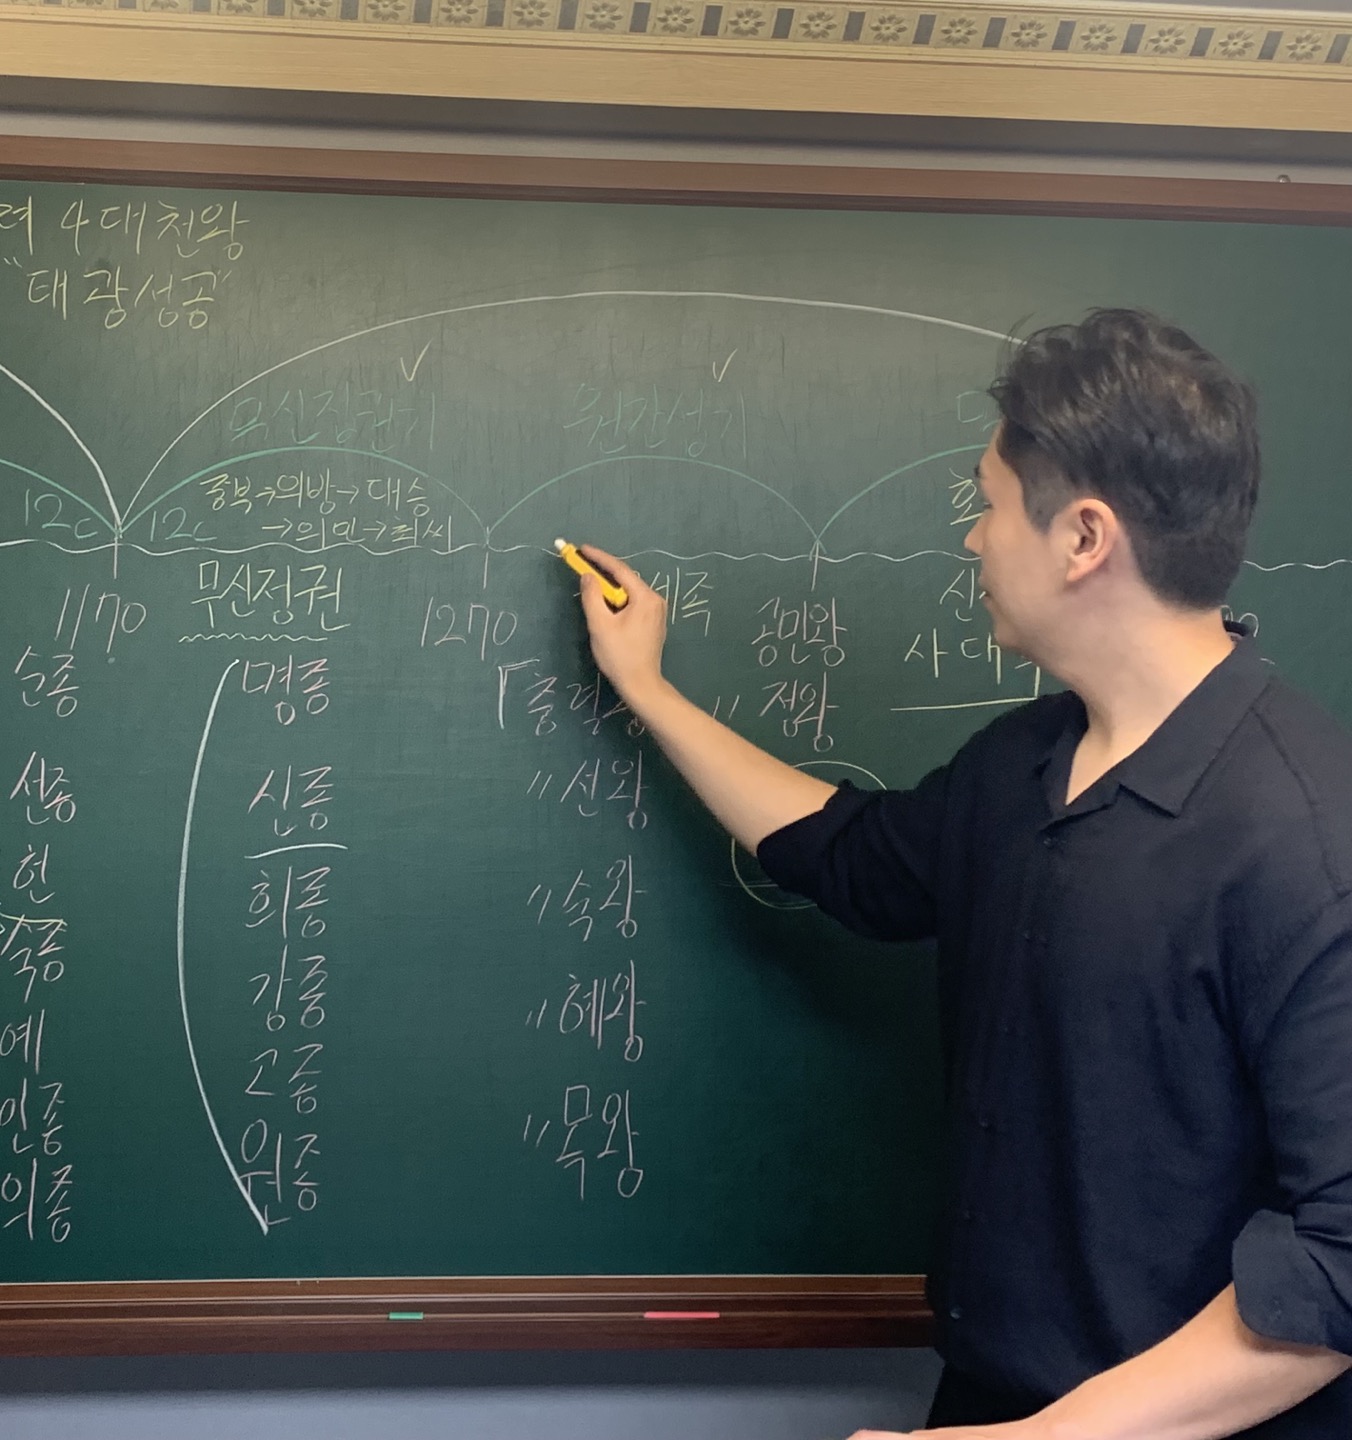 려 4대천왕
"태광성공"
무신정권기
원간섭기
중부→의방→대승
→의민→최씨
12c
12c
1170
무신정권
1270
세조
공민왕
순종
명종
「충렬왕
〃 정왕
사대부
선종
신종
〃선왕
헌
희종
〃숙왕
숙종
강종
예
고종
〃혜왕
인종
원종
〃목왕
의종